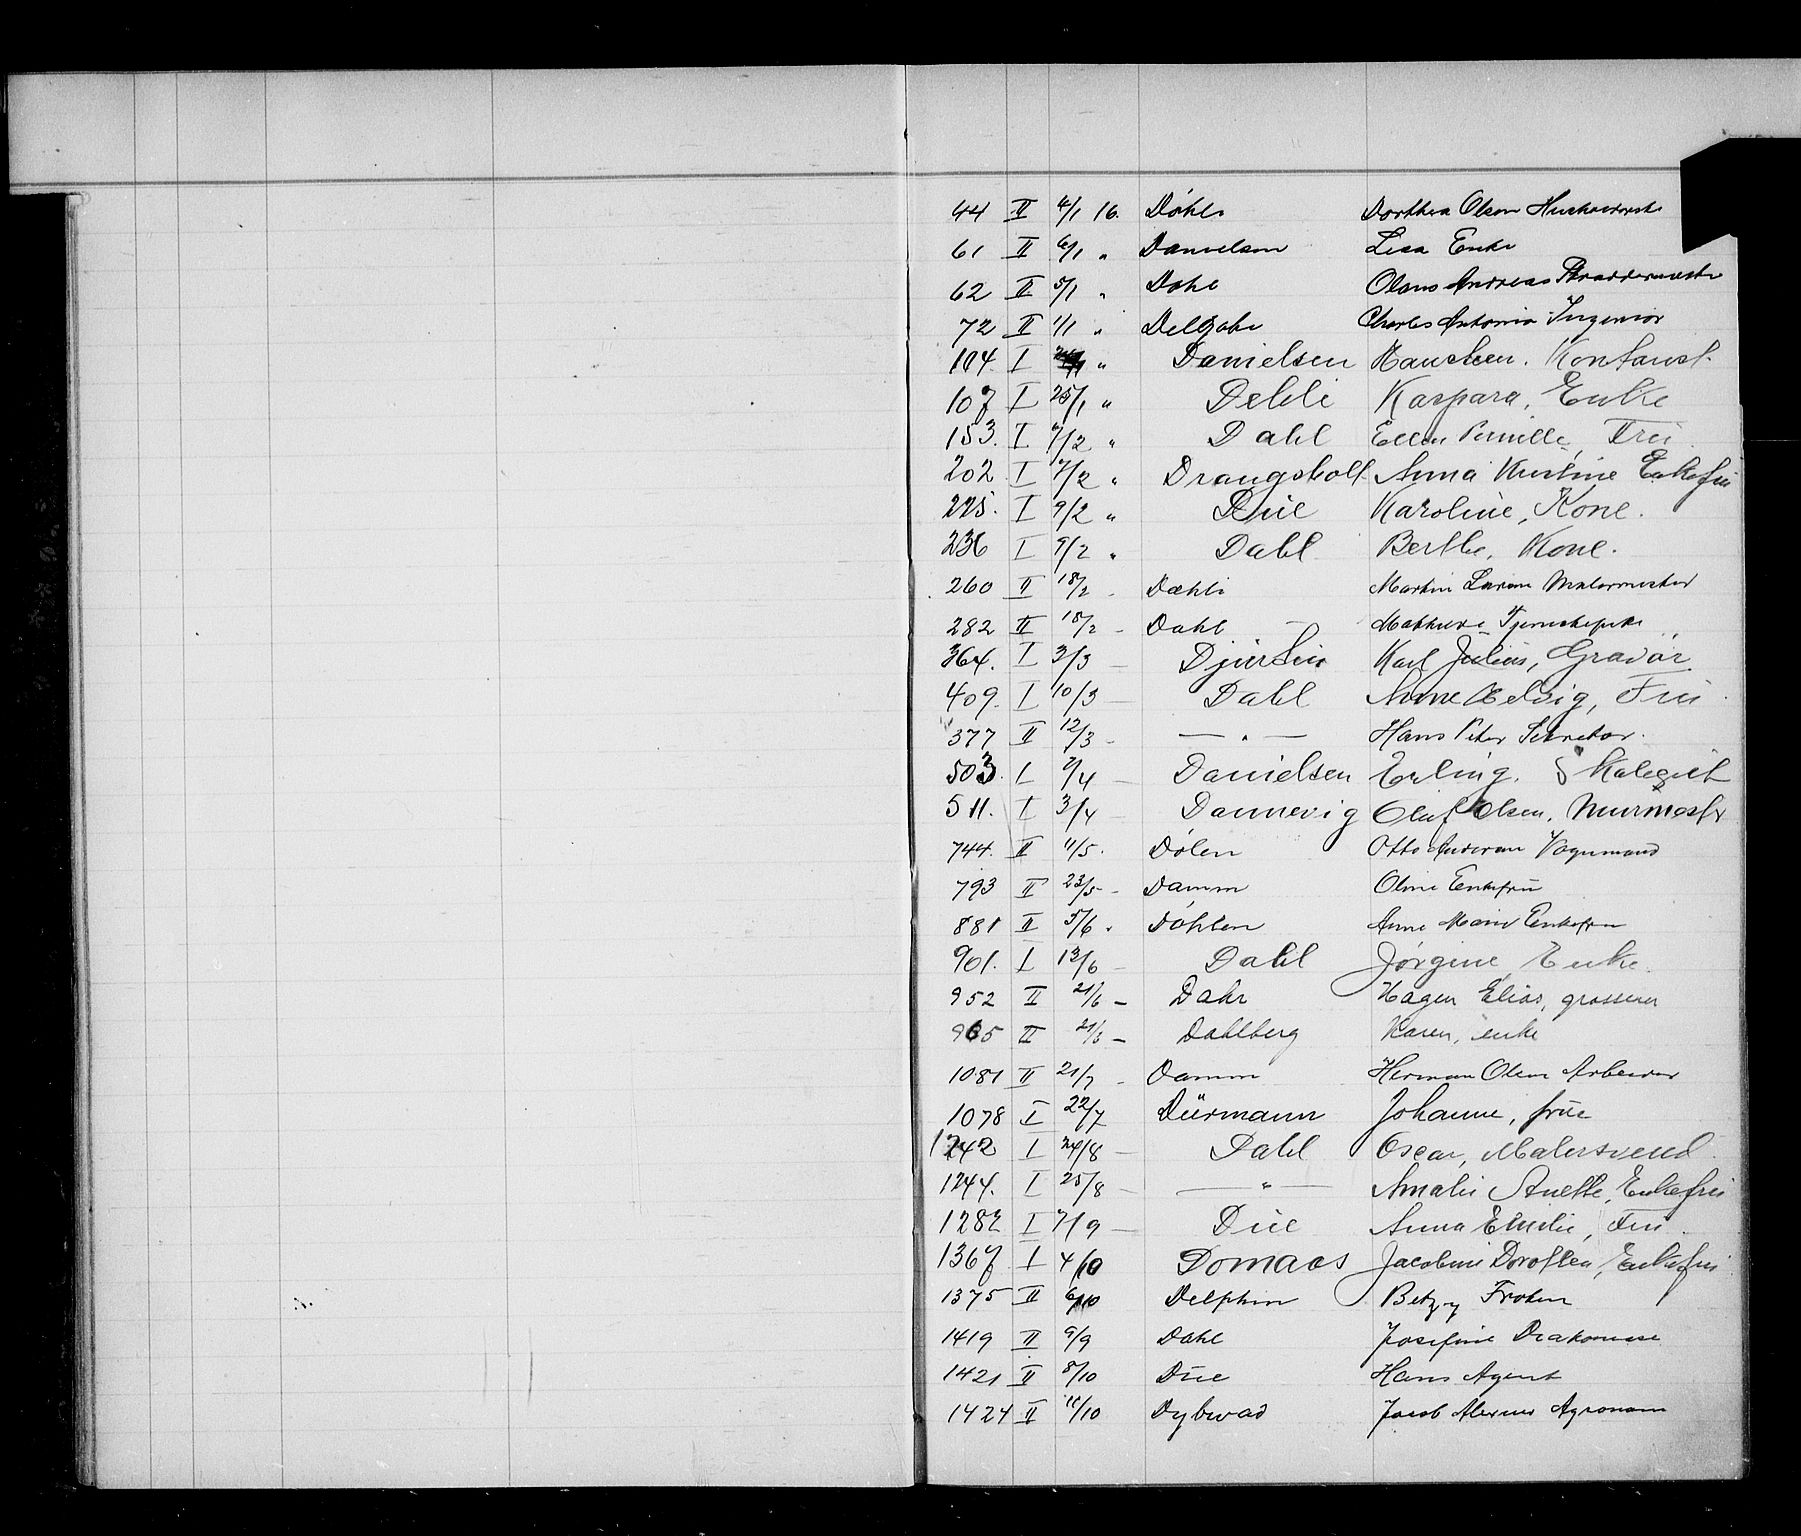 44 II 4/1 16. Döhli Dorthea Olsen
61 II 6/1 " Danielsen Lisa Enke
62 II 5/1 " Dahl Olaus Andreas
72 II 1/1 " Charles Antonio Ingeniør
104. I " Danielsen Kontorist.
107 I 25/1 " Dehli Kaspara, Enke
153. I 7/2 " Dahl Ellen Pernille, Frü
202. I 7/2 " Drangsholt Anna Kristine Enkefru
225. I 9/2 " Düe Karoline, Kone.
236 I 9/2 " Dahl Berthe, Kone.
260 II 18/2 - Dæhli Martin Larsen Malermester
282 II 18/2 - Dahl Mathilde Tjenestepike
364. I 3/3 — Karl Julius, Gravør
409. I 10/3 — Dahl Anne Hedvig, Frü
377 II 12/3 - — " — Hans Peter Sekretær.
503. I 2/4 — Danielsen Erling,
511. I 3/4 — Dannevig Oluf Olsen, Murmestr
744. II 11/5. Dölen Otto Andersen Vognmand
793 II 23/5 - Damm Oline Enkefru
881 II 5/6 - Döhlen Anne Marie Enkefru
901. I 13/6 — Dahl Jørgine, Enke.
952 II 21/6 — Dahr Hagen Elias, grosserer
965 II 21/6 — Dahlberg Karen, enke
1081 II 21/7 - Damm Herman Olsen Arbeider
1078 I 22/7 Dürmann Johanne, früe
1242 I 24/8 — Dahl Oscar, Malersvend.
1244. I 25/8 — — " — Amalie Anette, Enkefrü
1282 I 7/9 — Düe Anna Emilie, Frü.
1367 I 4/10 Domaas Jacobine Dorothea, Enkefrü
1375 II 6/10 Delphin Betzy Frøken
1419 II 9/9 Dahl Josefine Diakonisse
1421 II 8/10 Düe Hans Agent
1424 II 11/10 Dybwad Jacob Agronom